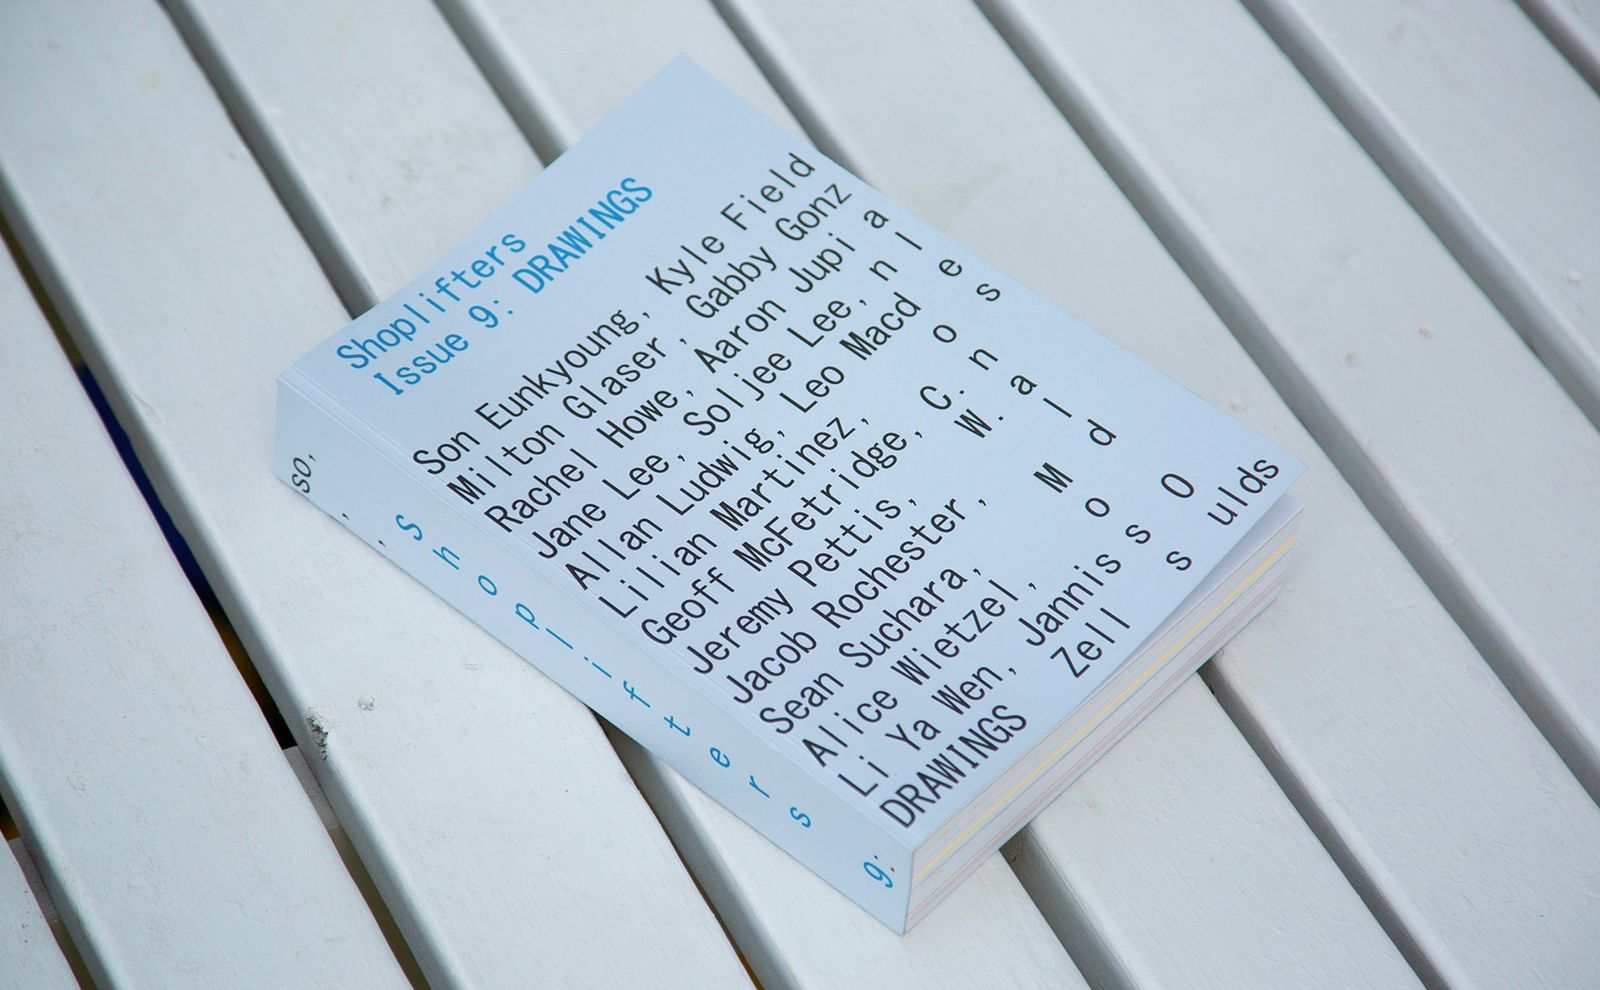 Shoplifters
Issue 9: DRAWINGS
Son Eunkyoung, Kyle Field
Milton Glaser, Gabby Gonz
Rachel Howe, Aaron Jupi a
Jane Lee, Soljee Lee, n l
Allan Ludwig, Leo Macd e
Lilian Martinez, o s
Geoff McFetridge, C. n
Jeremy Pettis, W. a
Jacob Rochester, l
Sean Suchara, M d
Alice Wietzel, o
Li Ya Wen, Jannis s O
DRAWINGS Zell s ulds
so,
Shoplifters 9: